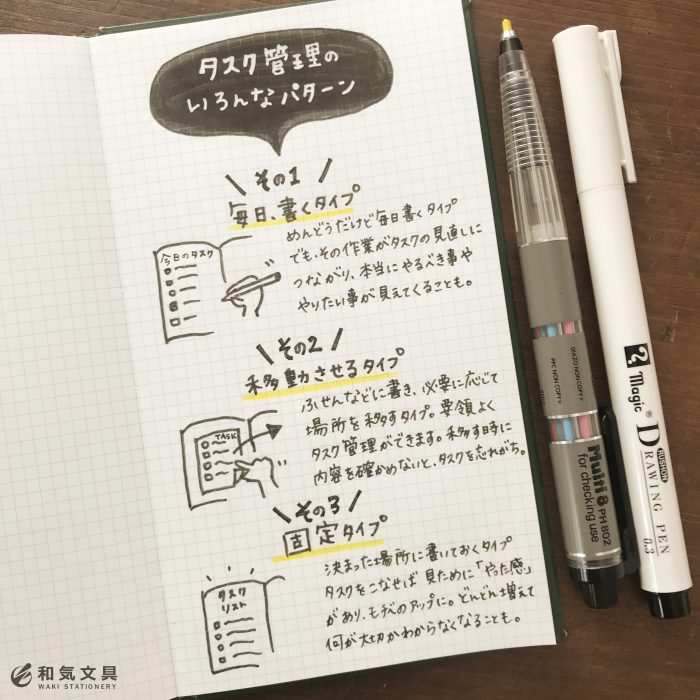 タスク管理の
いろんなパターン
その1
毎日、書くタイプ
めんどうだけど毎日書くタイプ
でも、その作業がタスクの見直しに
つながり、本当にやるべき事や
やりたい事が見えてくることも。
今日のタスク
その2
移動させるタイプ
ふせんなどに書き、必要に応じて
場所を移すタイプ。要領よく
タスク管理ができます。移す時に
内容を確かめないと、タスクを忘れがち。
TASK
その3
固定タイプ
決まった場所に書いておくタイプ
タスクをこなせば見ために「やった感」
があり、モチベのアップに。どんどん増えて
何が大切かわからなくなることも。
タスク
リスト
PPC NON COPY
DIAZO NON COPY
Multi 8 PH 802
for checking use
Magic®
DRAWING PEN
0.3
和気文具
WAKI STATIONERY